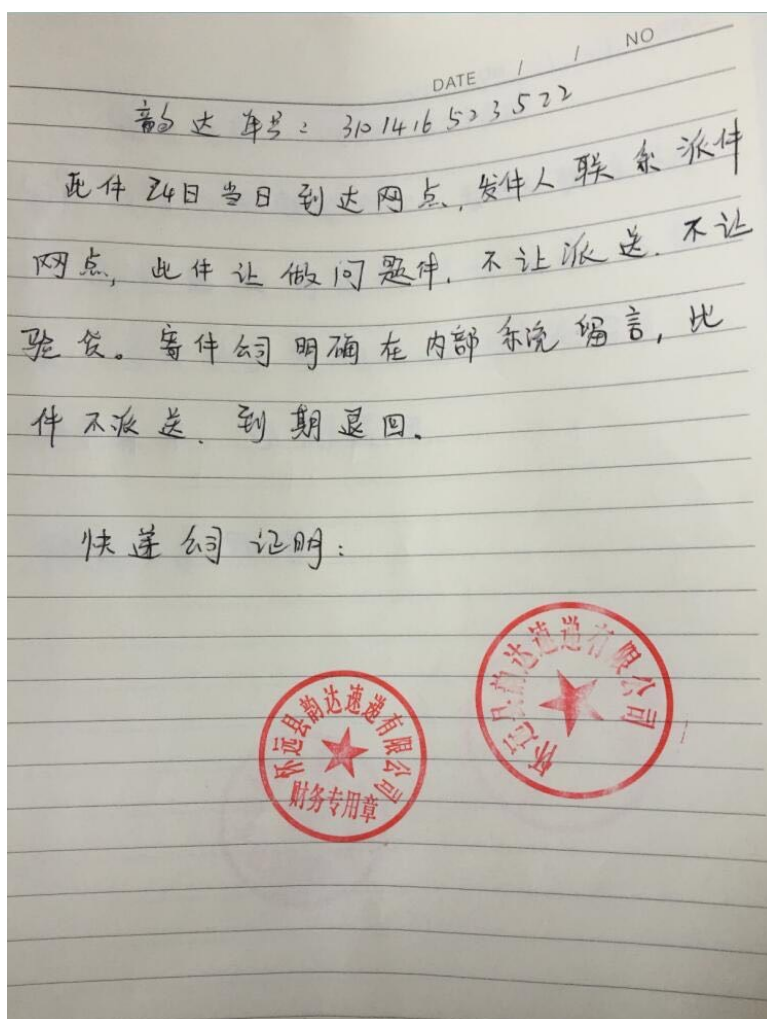 DATE / / NO
韵达单号：3101416523522
此件24日当日到达网点，发件人联系派件
网点，此件让做问题件，不让派送，不让
验货。寄件公司明确在内部系统留言，此
件不派送，到期退回。
快递公司证明：
怀远县韵达速递有限公司
怀远县韵达速递有限公司
财务专用章